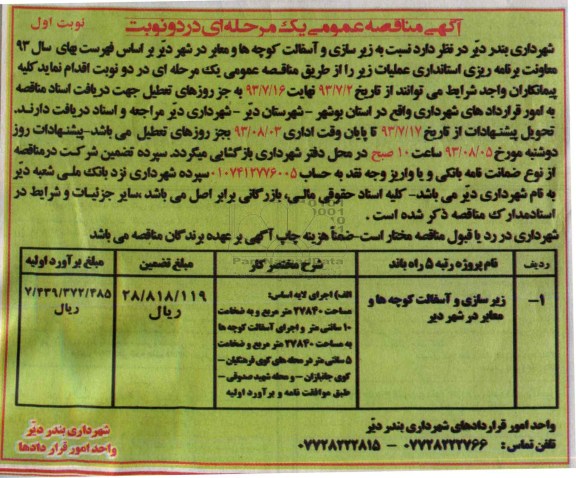 آگهی مناقصه عمومی یک مرحله ای در دو نوبت
نوبت اول
شهرداری بندر دیّر در نظر دارد نسبت به زیر سازی و آسفالت کوچه ها و معابر در شهر دیّر بر اساس فهرست بهای سال ۹۳
معاونت برنامه ریزی استانداری عملیات زیر را از طریق مناقصه عمومی یک مرحله ای در دو نوبت اقدام نماید کلیه
پیمانکاران واجد شرایط می توانند از تاریخ ۹۳/۷/۲ لغایت ۹۳/۷/۱۶ به جز روزهای تعطیل جهت دریافت اسناد مناقصه
به امور قرارداد های شهرداری واقع در استان بوشهر - شهرستان دیّر - شهرداری دیّر مراجعه و اسناد دریافت دارند.
تحویل پیشنهادات از تاریخ ۹۳/۷/۱۷ تا پایان وقت اداری ۹۳/۰۸/۰۳ بجز روزهای تعطیل می باشد-پیشنهادات روز
دوشنبه مورخ ۹۳/۰۸/۰۵ ساعت ۱۰ صبح در محل دفتر شهرداری بازگشایی میگردد. سپرده تضمین شرکت در مناقصه
از نوع ضمانت نامه بانکی و یا واریز وجه نقد به حساب ۰۱۰۷۴۱۲۷۷۶۰۰۵ سپرده شهرداری نزد بانک ملی شعبه دیّر
به نام شهرداری دیّر می باشد- کلیه اسناد حقوقی مالی، بازرگانی برابر اصل می باشد ،سایر جزئیات و شرایط در
اسنادمدارک مناقصه ذکر شده است .
شهرداری در رد یا قبول مناقصه مختار است-ضمناً هزینه چاپ آگهی بر عهده برندگان مناقصه می باشد
ردیف
نام پروژه رتبه ۵ راه باند
شرح مختصر کار
مبلغ تضمین
مبلغ برآورد اولیه
۱-
زیر سازی و آسفالت کوچه ها و
معابر در شهر دیر
الف) اجرای لایه اساس:
مساحت ۲۷۸۴۰ متر مربع و به ضخامت
۱۰ سانتی متر و اجرای آسفالت کوچه ها
به مساحت ۲۷۸۴۰ متر مربع و ضخامت
۵ سانتی متر در محله های کوی فرهنگیان -
کوی جانبازان - و محله شهید صدوقی -
طبق موافقت نامه و برآورد اولیه
۲۸/۸۱۸/۱۱۹
ریال
۷/۴۳۹/۳۷۲/۳۸۵
ریال
واحد امور قراردادهای شهرداری بندر دیّر
تلفن تماس : ۰۷۷۲۸۲۲۲۷۶۶ - ۰۷۷۲۸۲۲۲۸۱۵
شهرداری بندر دیّر
واحد امور قرار دادها